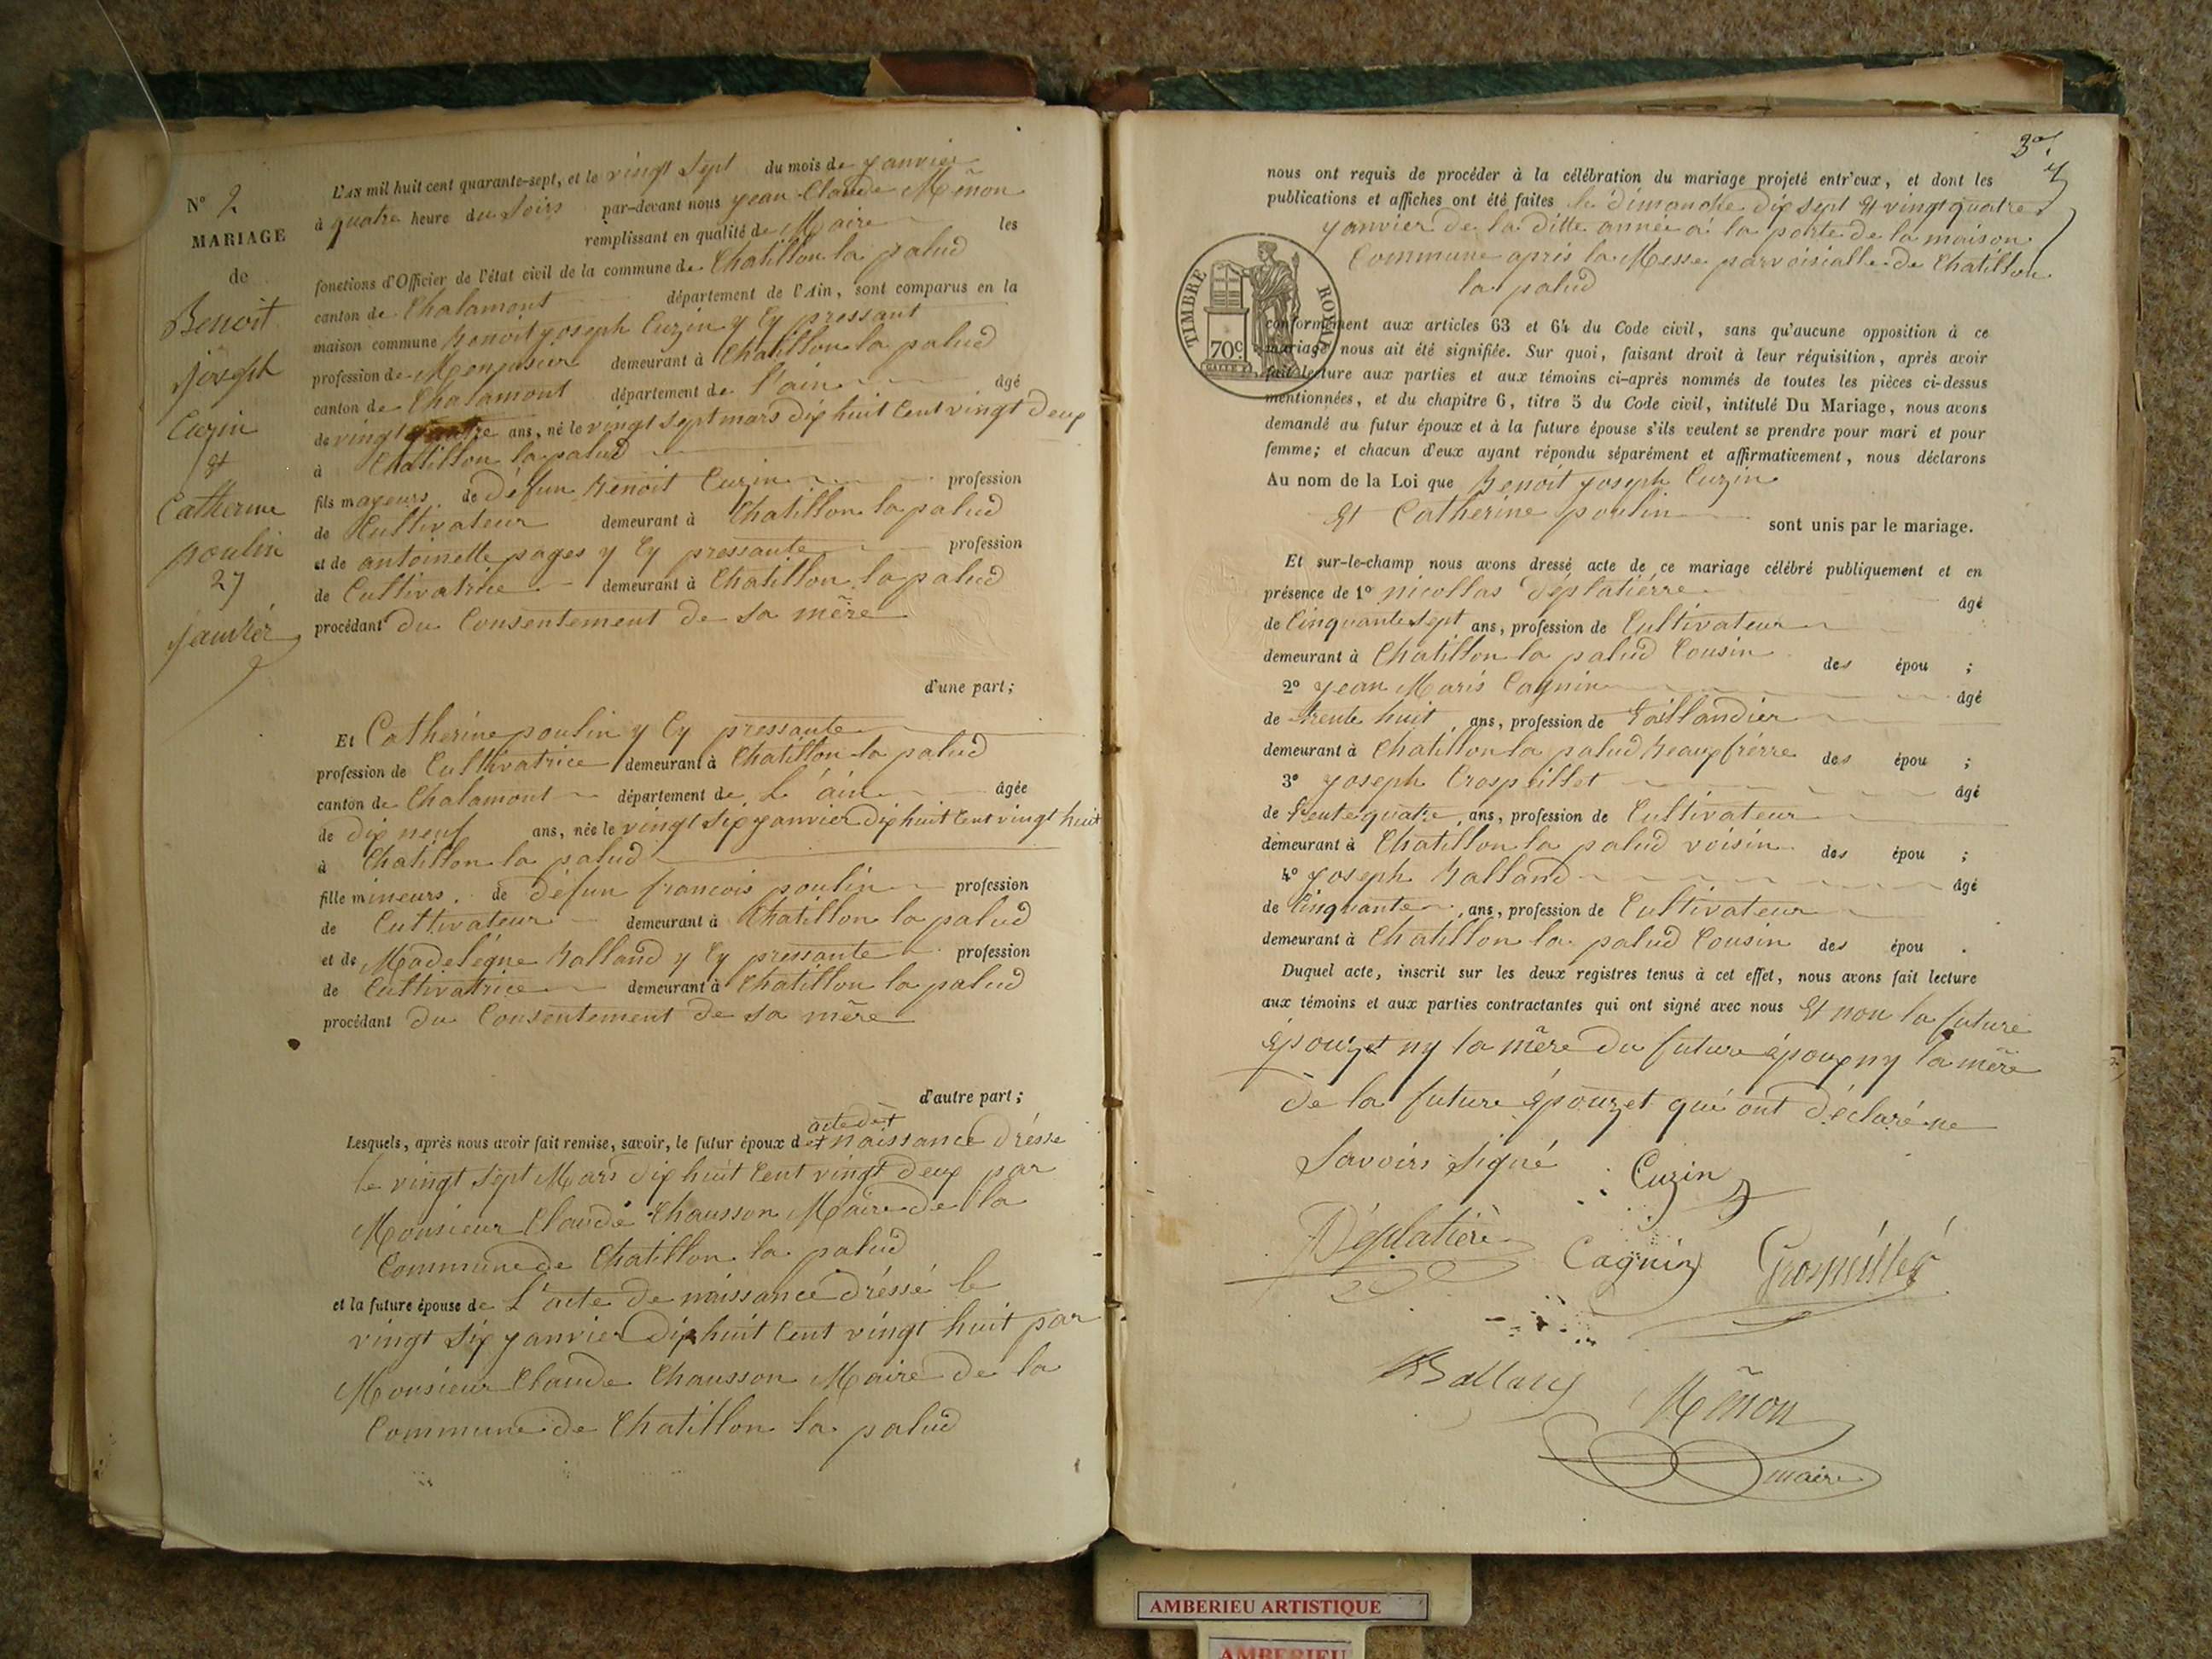 N° 2
MARIAGE
de
Benoit
Joseph
Cuzin
et
Catherine
poulin
27
janvier
L'AN mil huit cent quarante-sept, et le vingt sept du mois de janvier
à quatre heure du soirs par-devant nous jean Claude Menon
remplissant en qualité de Maire les
fonctions d'Officier de l'état civil de la commune de Chatillon la palud
canton de Chalamont département de l'Ain, sont comparus en la
maison commune Benoit joseph Cuzin y Cy pressant
profession de demeurant à Chatillon la palud
canton de Chalamont département de l'ain âgé
de vingt quatre ans, né le vingt sept mars dix huit Cent vingt deux
à Chatillon la palud
fils mageurs de défun Benoit Cuzin profession
de Cultivateur demeurant à Chatillon la palud
et de antoinette pages y Cy pressante profession
de Cultivatrice demeurant à Chatillon la palud
procédant du Consentement de sa mère
d'une part;
Et Catherine poulin y Cy pressante
profession de Cultivatrice demeurant à Chatillon la palud
canton de Chalamont département de L'ain âgée
de dix neuf ans, née le vingt six janvier dix huit Cent vingt huit
à Chatillon la palud
fille mineurs de défun francois poulin profession
de Cultivateur demeurant à Chatillon la palud
et de Madeleigne Balland y Cy pressante profession
de Cultivatrice demeurant à Chatillon la palud
procédant du Consentement de sa mère
d'autre part;
Lesquels, après nous avoir fait remise, savoir, le futur époux de naissance dréssé
le vingt sept Mars dix huit Cent vingt deux par
Monsieur Claude Chausson Maire de la
Commune de Chatillon la palud
et la future épouse de L'acte de naissance dréssé le
vingt six janvier dix huit Cent vingt huit par
Monsieur Claude Chausson Maire de la
Commune de Chatillon la palud
nous ont requis de procéder à la célébration du mariage projeté entr'eux, et dont les
publications et affiches ont été faites le dimanche dix sept Et vingt quatre
janvier de la ditte année à la porte de la maison
Commune apris la Messe parroisialle de Chatillon
la palud
TIMBRE ROYAL
70c
conformément aux articles 63 et 64 du Code civil, sans qu'aucune opposition à ce
mariage nous ait été signifiée. Sur quoi, faisant droit à leur réquisition, après avoir
fait lecture aux parties et aux témoins ci-après nommés de toutes les pièces ci-dessus
mentionnées, et du chapitre 6, titre 5 du Code civil, intitulé Du Mariage, nous avons
demandé au futur époux et à la future épouse s'ils veulent se prendre pour mari et pour
femme; et chacun d'eux ayant répondu séparément et affirmativement, nous déclarons
Au nom de la Loi que Benoit joseph Cuzin
Et Catherine poulin sont unis par le mariage.
Et sur-le-champ nous avons dressé acte de ce mariage célébré publiquement et en
présence de 1° nicollas Déplatiérre âgé
de Cinquante sept ans, profession de Cultivateur
demeurant à Chatillon la palud Cousin des épou ;
2° jean Marie Cagnin âgé
de trente huit ans, profession de Taillandier
demeurant à Chatillon la palud Beaux frérre des épou ;
3° joseph Crospeillet âgé
de trente quatre ans, profession de Cultivateur
demeurant à Chatillon la palud voisin des épou ;
4° joseph Balland âgé
de Cinquante ans, profession de Cultivateur
demeurant à Chatillon la palud Cousin des épou .
Duquel acte, inscrit sur les deux registres tenus à cet effet, nous avons fait lecture
aux témoins et aux parties contractantes qui ont signé avec nous Et non la future
Épouzet ny la mère du future époux ny la mère
de la future épouzet qui ont déclaré ne
Savoirs Signé Cuzin
Déplatière Cagnin
Balland Menon
maire
AMBERIEU ARTISTIQUE
AMBERIEU